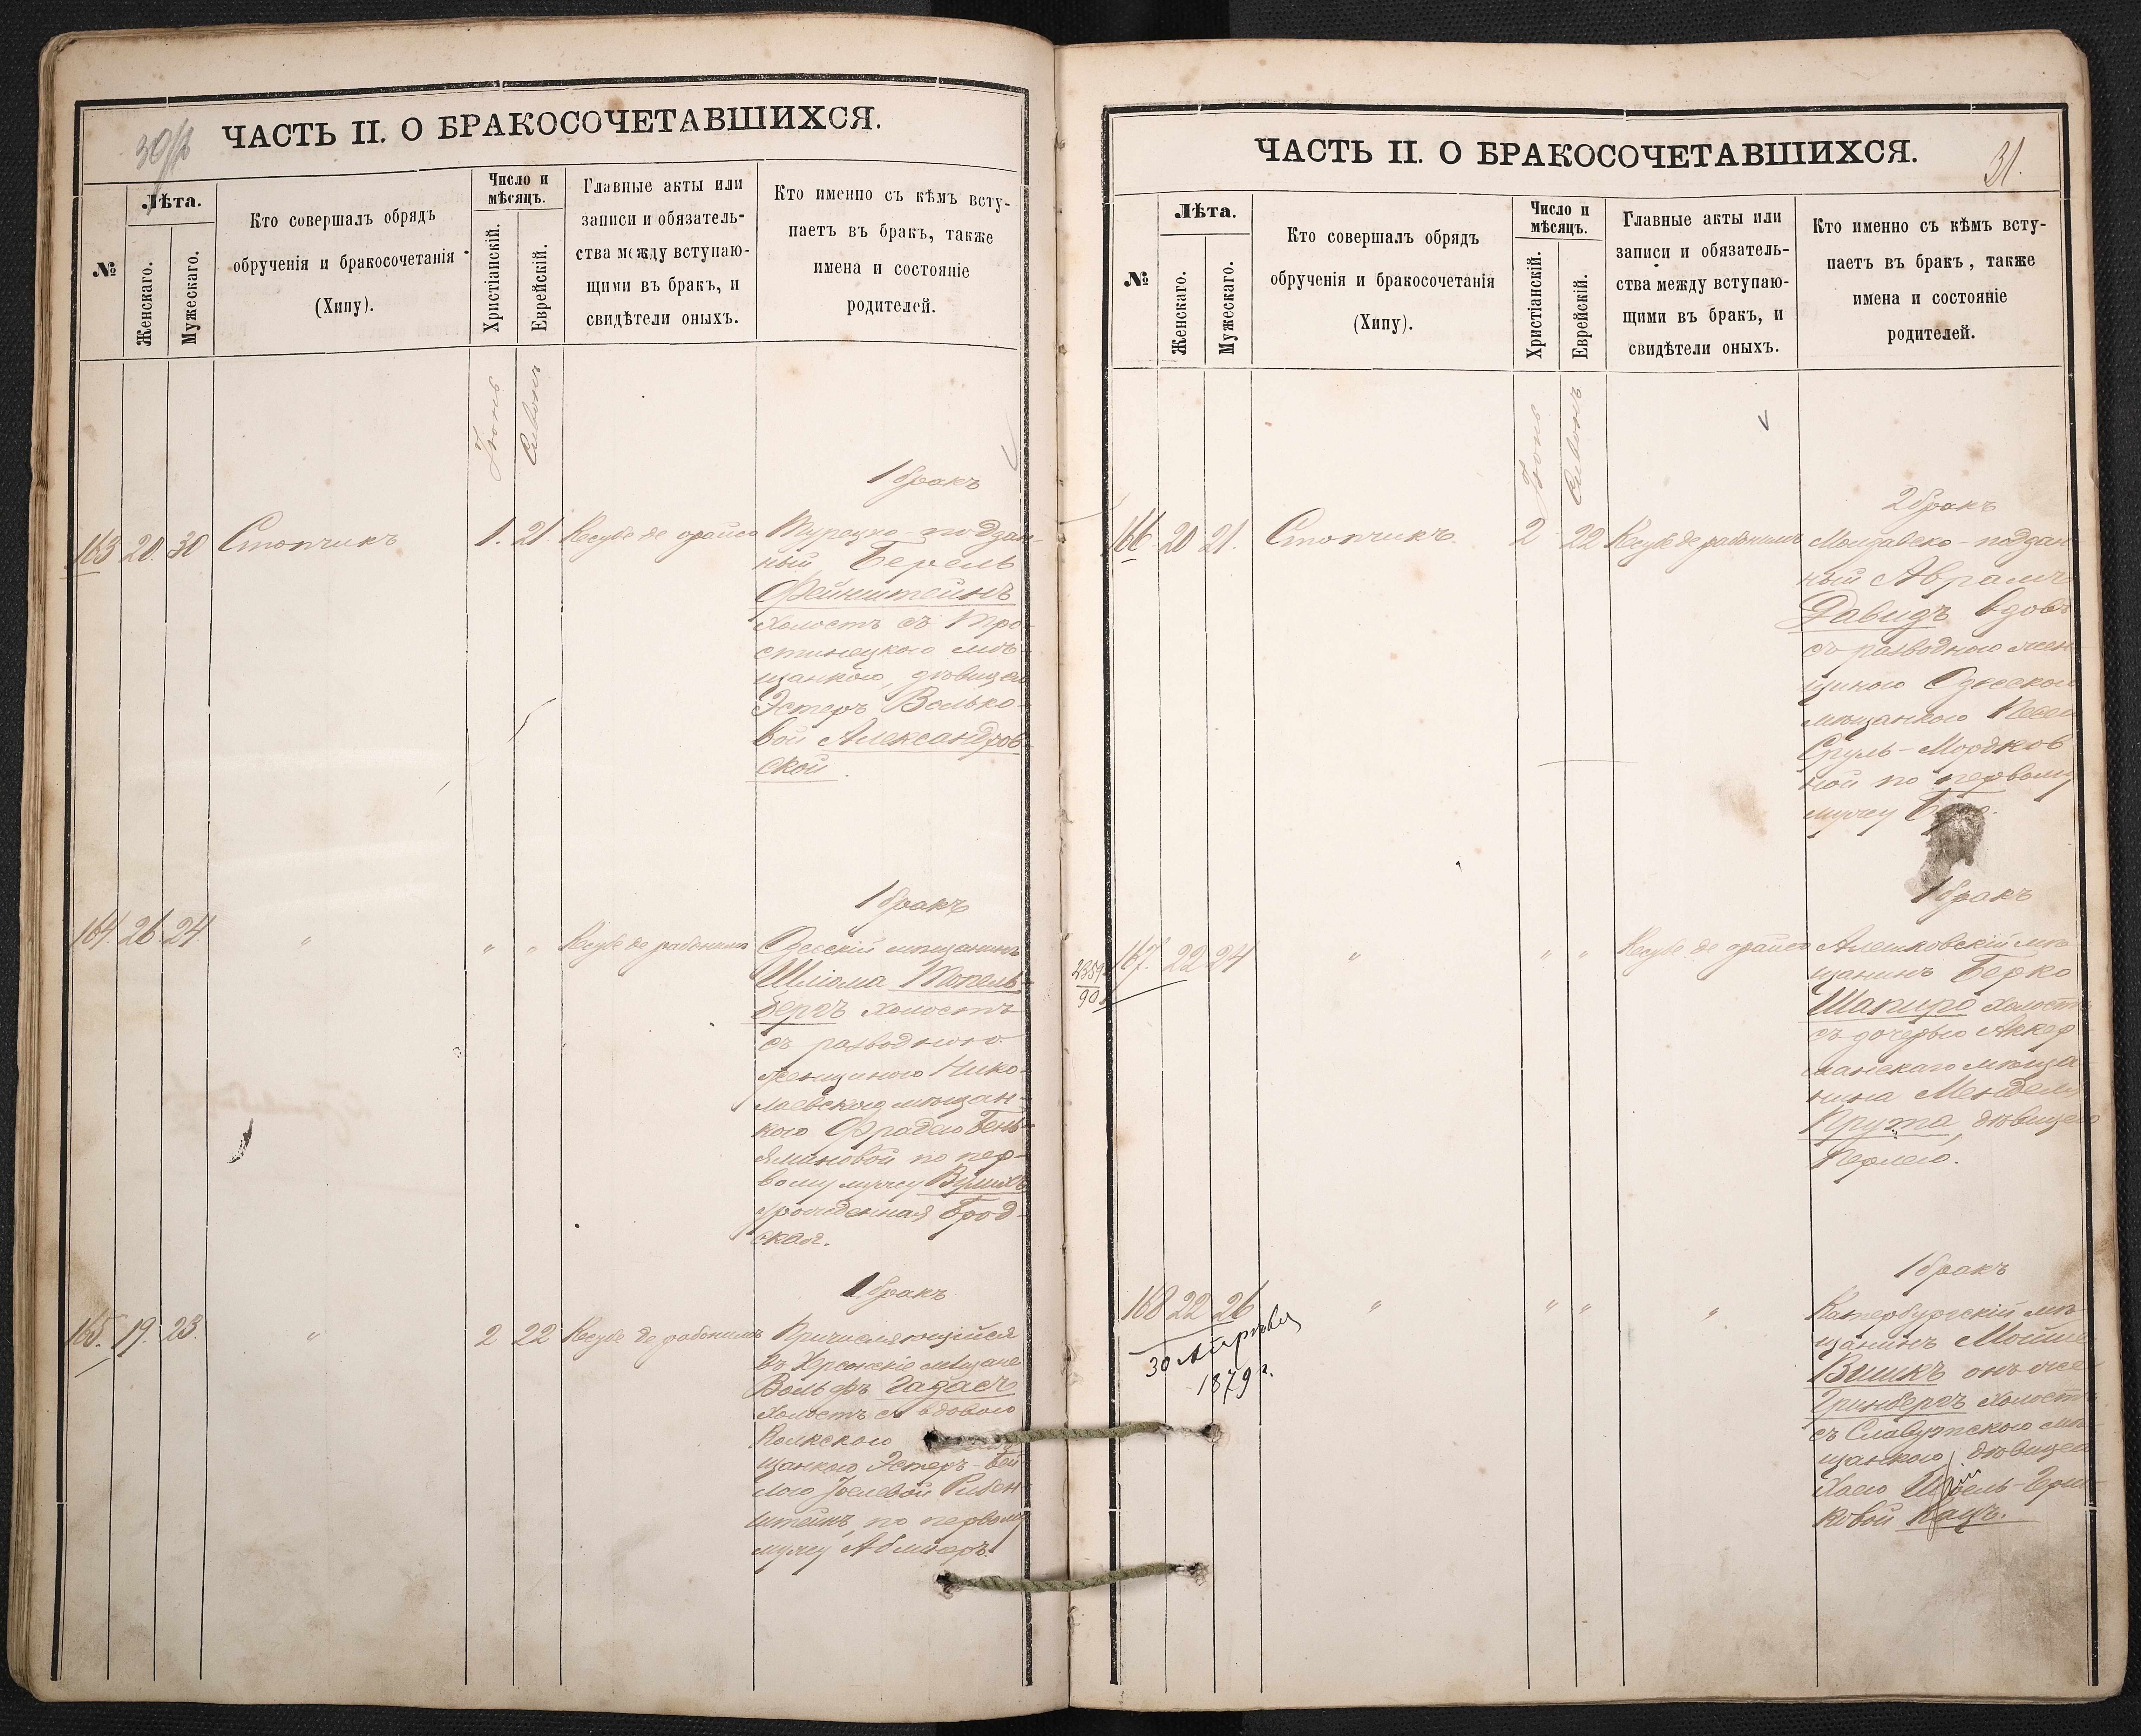 ЧАСТЬ II. О БРАКОСОЧЕТАВШИХСЯ.
№
Лѣта.
Женскаго.
Мужескаго.
Кто совершалъ обрядъ
обрученія и бракосочетанія
(Хипу).
Число и
мѣсяцъ.
Христіанскій.
Еврейскій.
Главные акты или
записи и обязатель-
ства между вступаю-
щими въ бракъ, и
свидѣтели оныхъ.
Кто именно съ кѣмъ всту-
паетъ въ бракъ, также
имена и состояніе
родителей.
Іюнь
Сивонъ
1 бракъ
163 20. 30 Стопчикъ 1. 21. Кесубе де орайсо Турецко-поддан-
ный Берель
Фейнштейнъ
холостъ съ Тро-
стинецкою мѣ-
щанкою, дѣвицею
Эстеръ Волько-
вой Александров-
ской.
1 бракъ
164. 26. 24. " " " Кесубе де рабонимъ Одесскій мѣщанинъ
Шліома Топель-
бергъ холостъ
съ разводною
женщиною Нико-
лаевскою мѣщан-
кою Фрадею Бень-
яминовой по пер-
вому мужу
урожденная Брод-
ская.
1 бракъ
165. 19. 23. " 2 22 Кесубе де рабонимъ Причисляющійся
въ Херсонскіе мѣщане
Вольфъ Гадасъ
холостъ съ вдовою
щанкою Эстеръ-Бей-
лою Іоелевой Рубен-
штейнъ, по первому
мужу
ЧАСТЬ II. О БРАКОСОЧЕТАВШИХСЯ.
31.
№
Лѣта.
Женскаго.
Мужескаго.
Кто совершалъ обрядъ
обрученія и бракосочетанія
(Хипу).
Число и
мѣсяцъ.
Христіанскій.
Еврейскій.
Главные акты или
записи и обязатель-
ства между вступаю-
щими въ бракъ, и
свидѣтели оныхъ.
Кто именно съ кѣмъ всту-
паетъ въ бракъ, также
имена и состояніе
родителей.
Іюнь
Сивонъ
2 бракъ
166. 20 21. Стопчикъ 2 22 Кесубе де рабонимъ Молдавско-поддан
ный Аврамъ
Давидъ вдовъ
съ разводною жен
щиною Одесскою
мѣщанкою
Сруль-Мордков
ной по первому
мужу
1 бракъ
2359
90
167. 22 24 " " " Кесубе де орайсо Алешковскій мѣ
щанинъ Берко
Шапиро холостъ
съ дочерью Аккер
манскаго мѣща
нина Менделя
Прута, дѣвицею
Перлею.
1 бракъ
168 22 26 " " " " Катербургскій мѣ
щанинъ Мойше
Вишкъ онъ же
Гринбергъ холостъ
съ Славутскою мѣ
щанкою дѣвицею
Хаею
ковой Кацъ.
30 Апрѣля
1879 г.